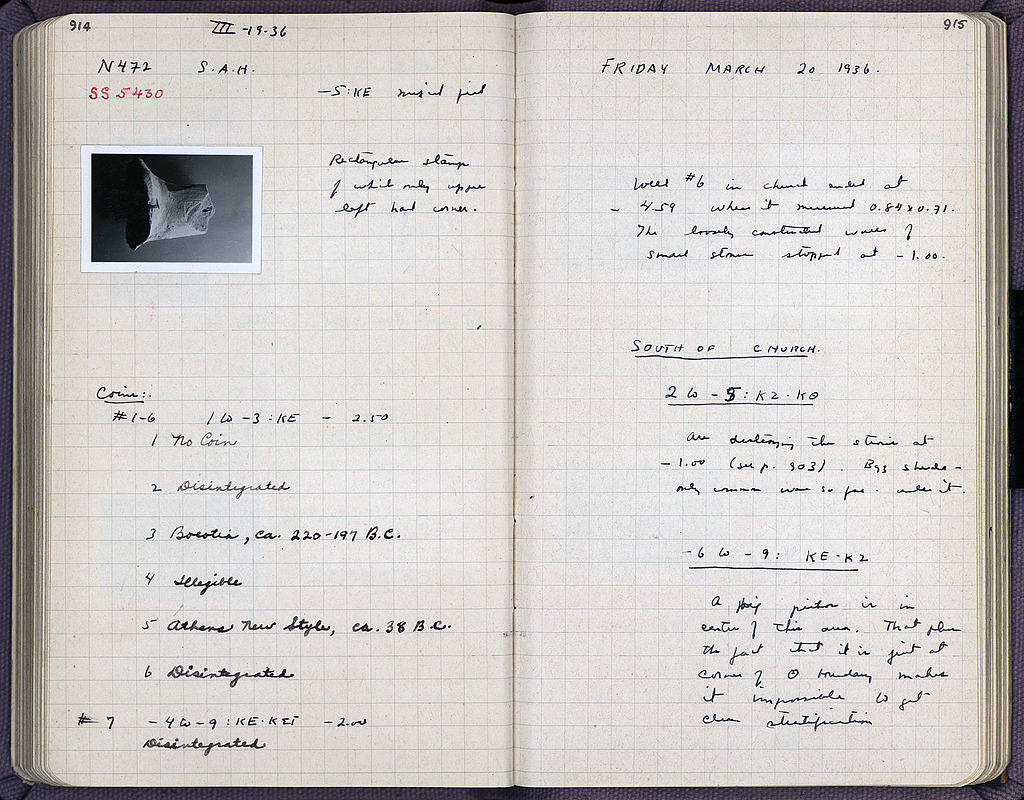 914
III -19-36
N472 S.A.H.
SS 5430
-5:KE mixed fill
Rectangular stamp
of which only upper
left hand corner.
Coins:
#1-6 1 to -3 : KE - 2.50
1 No Coin
2 Disintegrated
3 Boeotia, ca. 220-197 B.C.
4 Illegible
5 Athens New Style, ca. 38 B.C.
6 Disintegrated
# 7 -4 to -9 : KE-KΣΤ -2.00
Disintegrated
915
FRIDAY MARCH 20 1936.
Well #6 in church ended at
- 4.59 when it measured 0.84 x 0.71.
The loosely constructed walls of
small stones stopped at -1.00.
SOUTH OF CHURCH.
2 to -5 : KZ-KΘ
are destroying the stosis at
-1.00 (see p. 903). Byz sherds -
only common ware so far - under it.
-6 to -9 : KE-KZ
A big pithos is in
centre of this area. That plus
the fact that it is just at
corner of Θ boundary makes
it impossible to get
clear stratification